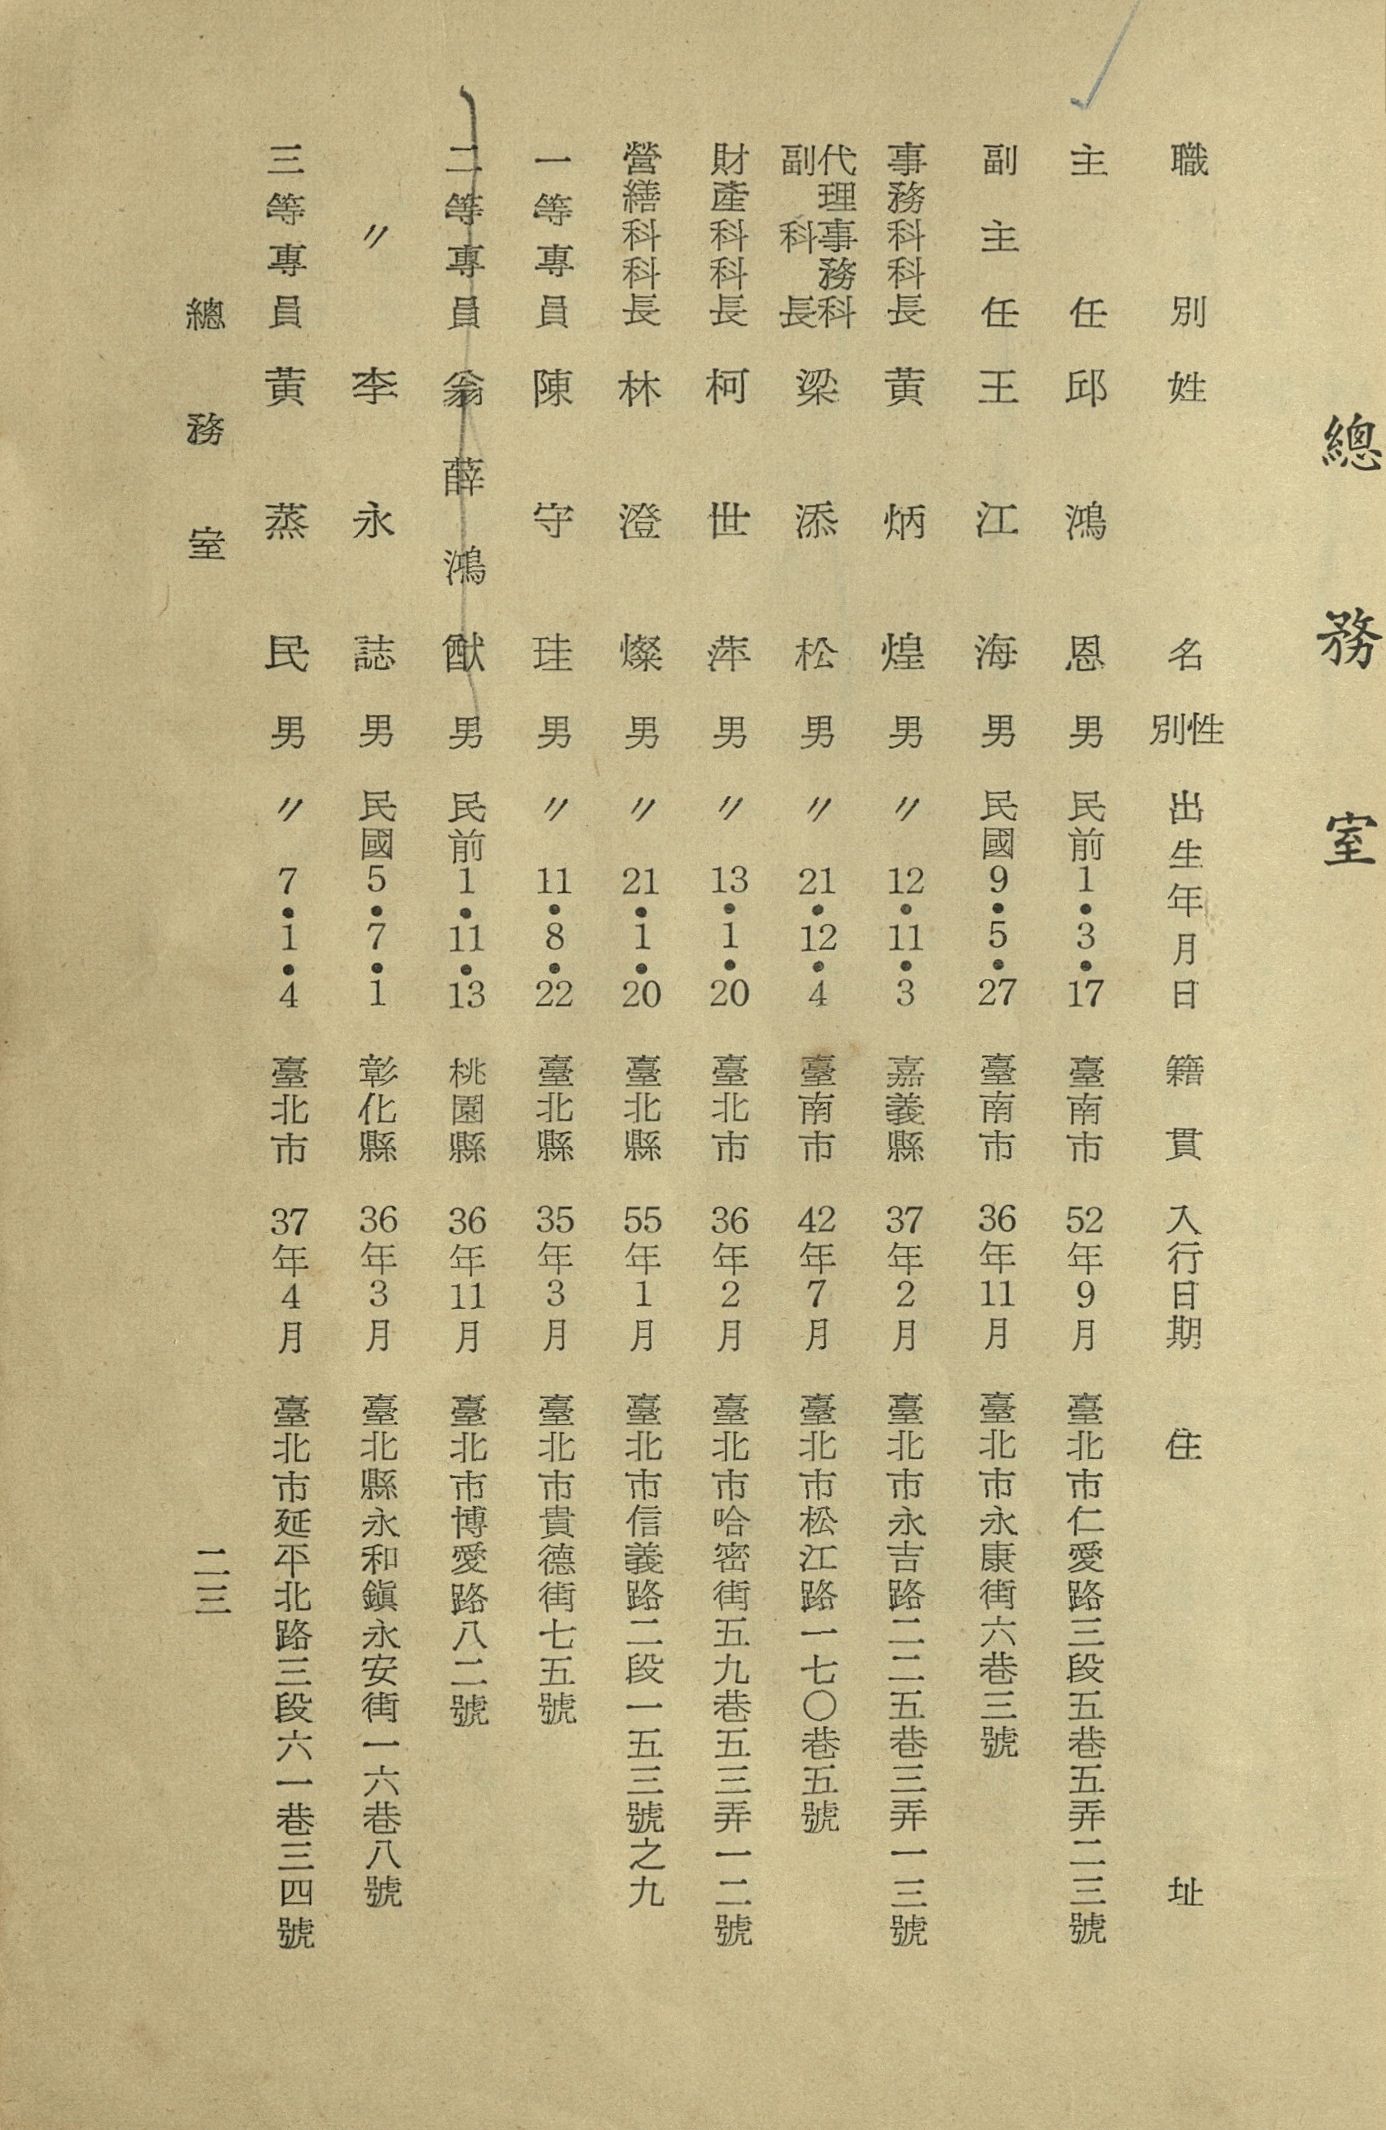 總務室
職別 姓名 性別 出生年月日 籍貫 入行日期 住址
主任 邱鴻恩 男 民前1•3•17 臺南市 52年9月 臺北市仁愛路三段五巷五弄二三號
副主任 王江海 男 民國9•5•27 臺南市 36年11月 臺北市永康街六巷三號
事務科科長 黃炳煌 男 〃12•11•3 嘉義縣 37年2月 臺北市永吉路二二五巷三弄一三號
代理事務科副科長 梁添松 男 〃21•12•4 臺南市 42年7月 臺北市松江路一七〇巷五號
財產科科長 柯世萍 男 〃13•1•20 臺北市 36年2月 臺北市哈密街五九巷五三弄一二號
營繕科科長 林澄燦 男 〃21•1•20 臺北縣 55年1月 臺北市信義路二段一五三號之九
一等專員 陳守珪 男 〃11•8•22 臺北縣 35年3月 臺北市貴德街七五號
二等專員 翁薛鴻猷 男 民前1•11•13 桃園縣 36年11月 臺北市博愛路八二號
〃 李永誌 男 民國5•7•1 彰化縣 36年3月 臺北縣永和鎮永安街一六巷八號
三等專員 黃蒸民 男 〃7•1•4 臺北市 37年4月 臺北市延平北路三段六一巷三四號
總務室 二三